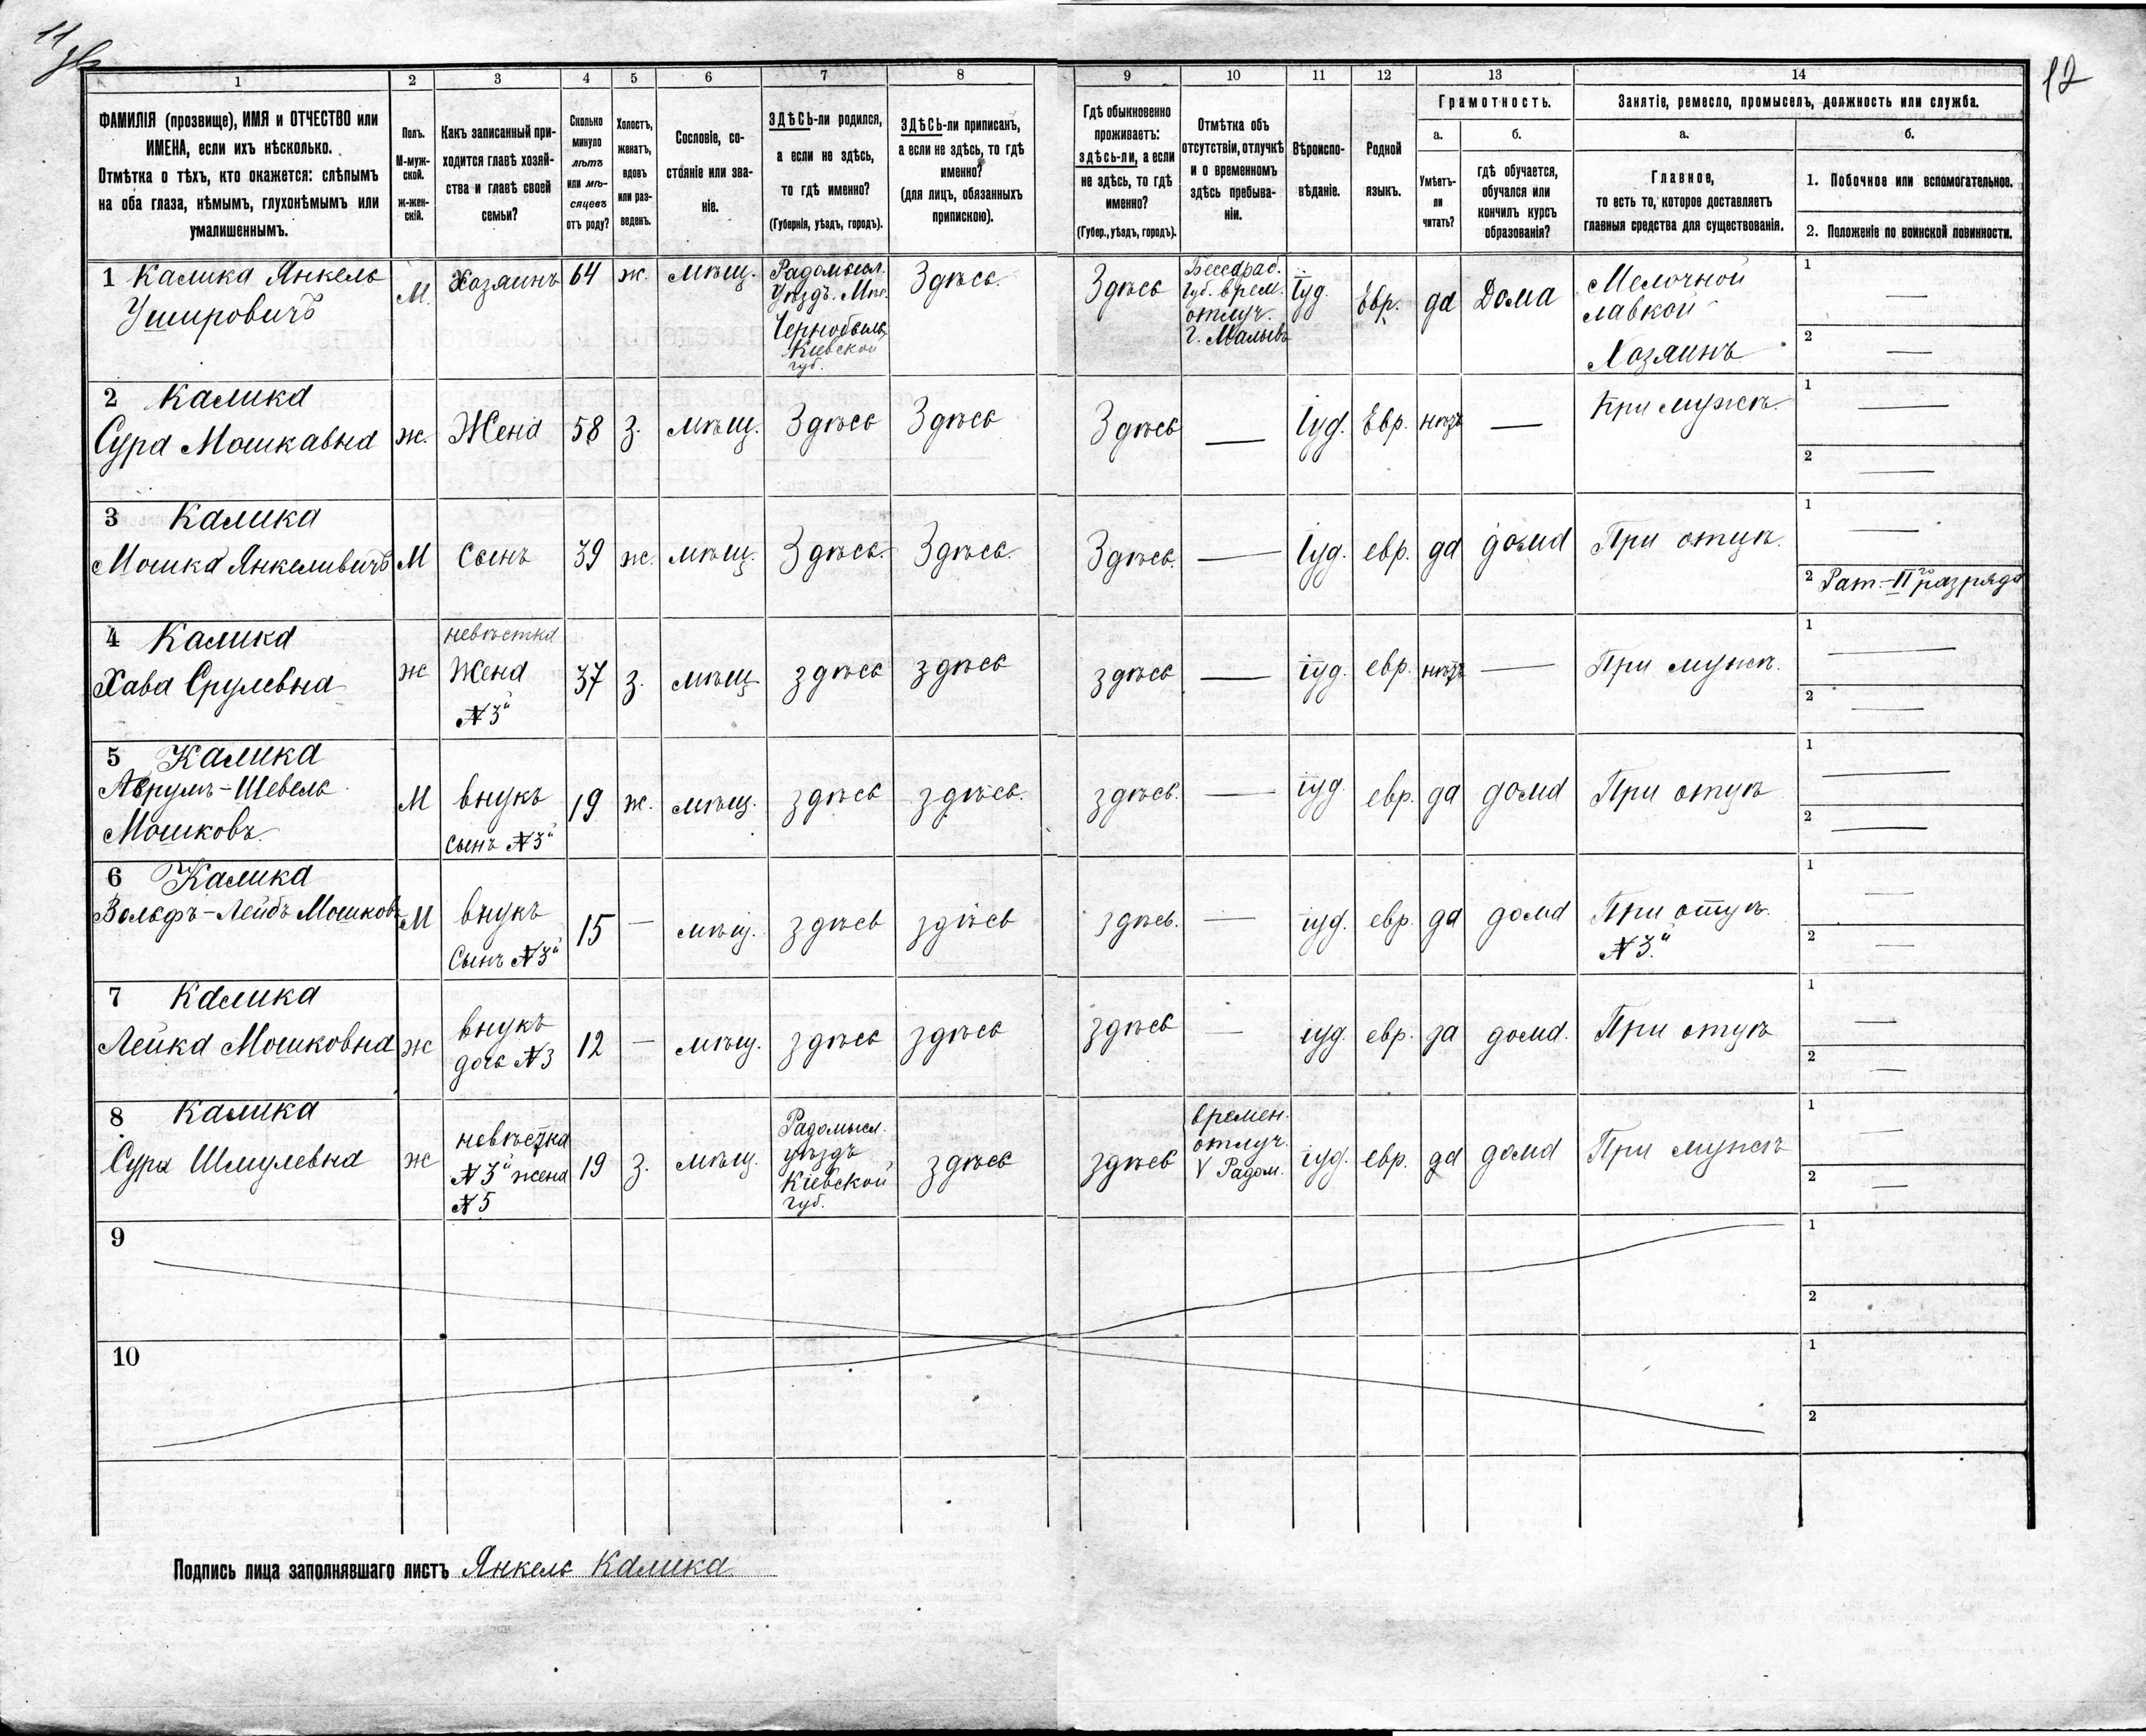 11
12
1
2
3
4
5
6
7
8
9
10
11
12
13
14
ФАМИЛІЯ (прозвище), ИМЯ и ОТЧЕСТВО или
ИМЕНА, если ихъ нѣсколько.
Отмѣтка о тѣхъ, кто окажется: слѣпымъ
на оба глаза, нѣмымъ, глухонѣмымъ или
умалишеннымъ.
Полъ.
М-муж-
ской.
ж-жен-
скій.
Какъ записанный при-
ходится главѣ хозяй-
ства и главѣ своей
семьи?
Сколько
минуло
лѣтъ
или мѣ-
сяцевъ
отъ роду?
Холостъ,
женатъ,
вдовъ
или раз-
веденъ.
Сословіе, со-
стояніе или зва-
ніе.
ЗДѢСЬ-ли родился,
а если не здѣсь,
то гдѣ именно?
(Губернія, уѣздъ, городъ).
ЗДѢСЬ-ли приписанъ,
а если не здѣсь, то гдѣ
именно?
(для лицъ, обязанныхъ
припискою).
Гдѣ обыкновенно
проживаетъ:
здѣсь-ли, а если
не здѣсь, то гдѣ
именно?
(Губер., уѣздъ, городъ).
Отмѣтка объ
отсутствіи, отлучкѣ
и о временномъ
здѣсь пребыва-
ніи.
Вѣроиспо-
вѣданіе.
Родной
языкъ.
Грамотность.
а.
б.
Умѣетъ-
ли
читать?
гдѣ обучается,
обучался или
кончилъ курсъ
образованія?
Занятіе, ремесло, промыселъ, должность или служба.
а.
б.
Главное,
то есть то, которое доставляетъ
главныя средства для существованія.
1. Побочное или вспомогательное.
2. Положеніе по воинской повинности.
1 Калика Янкель
Ушировичъ
М.
Хозяинъ
64
ж.
мѣщ.
Радомысл.
Уѣздъ. Мѣс.
Чернобыль
Кіевской
губ.
Здѣсь.
Здѣсь
Бессараб.
губ. врем.
отлуч.
Іуд.
Евр.
да
Дома
Мелочной
лавкой
Хозяинъ
1 —
2 —
2 Калика
Сура Мошкавна
ж.
Жена
58
З.
мѣщ.
Здѣсь
Здѣсь
Здѣсь
—
Іуд.
Евр.
нѣтъ
—
При мужѣ.
1 —
2 —
3 Калика
Мошка Янкеливичъ
М
сынъ
39
ж.
мѣщ.
Здѣсь.
Здѣсь.
Здѣсь.
—
Іуд.
евр.
да
дома
При отцѣ.
1 —
2 Рат. II го разряда
4 Калика
Хава Срулевна
ж
невѣстка
Жена
№ 3й
37
з.
мѣщ
здѣсь
здѣсь
здѣсь
—
іуд.
евр.
нѣтъ
—
При мужѣ.
1 —
2 —
5 Калика
Аврумъ-Шевель
Мошковъ
М
внукъ
сынъ №3й
19
ж.
мѣщ.
здѣсь
здѣсь.
здѣсь.
—
іуд
евр.
да
дома
При отцѣ
1 —
2 —
6 Калика
Вольфъ-Лейбъ Мошковъ
М
внукъ
Сынъ №3й
15
—
мѣщ.
здѣсь
здѣсь
здѣсь.
—
іуд.
евр.
да
дома
При отцѣ.
№ 3й
1 —
2 —
7 Калика
Лейка Мошковна
ж
внукъ
дочь №3
12
—
мѣщ.
здѣсь
здѣсь
здѣсь
—
іуд.
евр.
да
дома.
При отцѣ
1 —
2 —
8 Калика
Сура Шмулевна
ж
невѣстка
№3й жена
№5
19
з.
мѣщ.
Радомысл.
уѣздъ
Кіевской
губ.
здѣсь
здѣсь
времен.
отлуч.
Радом.
іуд.
евр.
да
дома
При мужѣ
1 —
2 —
9
1
2
10
1
2
Подпись лица заполнявшаго листъ Янкель Калика